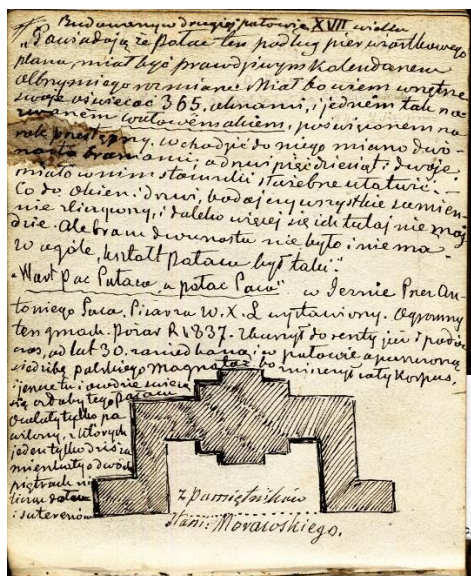 Budowany w drugiej połowie XVII wieku
"Powiadają że Pałac ten podług pierwiastkowego
planu, miał być prawdziwym kalendarzem
olbrzymiego rozmiaru. Miał bowiem wnętrze
swoje oświecać 365. oknami, i jednem tak na-
zwanem wołowem okiem, poświęconem na
rok przestępny. Wchodzić do niego miano dwó-
nastą bramami, a drzwi pięćdziesiąt i dwoje
miało w nim stanowić
Co do okien i drzwi, bodaj czy wszystkie sumien-
nie zliczywszy, i daleko więcej się ich tutaj nie znaj-
dzie. Ale bram dwunastu nie było i nie ma
W ogóle, kształt pałacu był taki:"
"Wart Pac Pałaca, a pałac Paca" w Jeznie Przez An-
toniego Paca. Pisarza W. X. L wystawiony. Ogromny
ten gmach. Pożar R 1837. zburzył do reszty już i podów-
czas, od lat 30. zaniedbaną, i w połowie opuszczoną
siedzibę polskiego magnata, bo zniszczył cały korpus,
się ozdoby tego Pałacu
Ocalały tylko pa
wilony, z których
jeden tylko dziś za
mieszkały o dwóch
piętrach nie
licząc dołu
i suterenów
z pamiętników
Stani: Morawskiego.